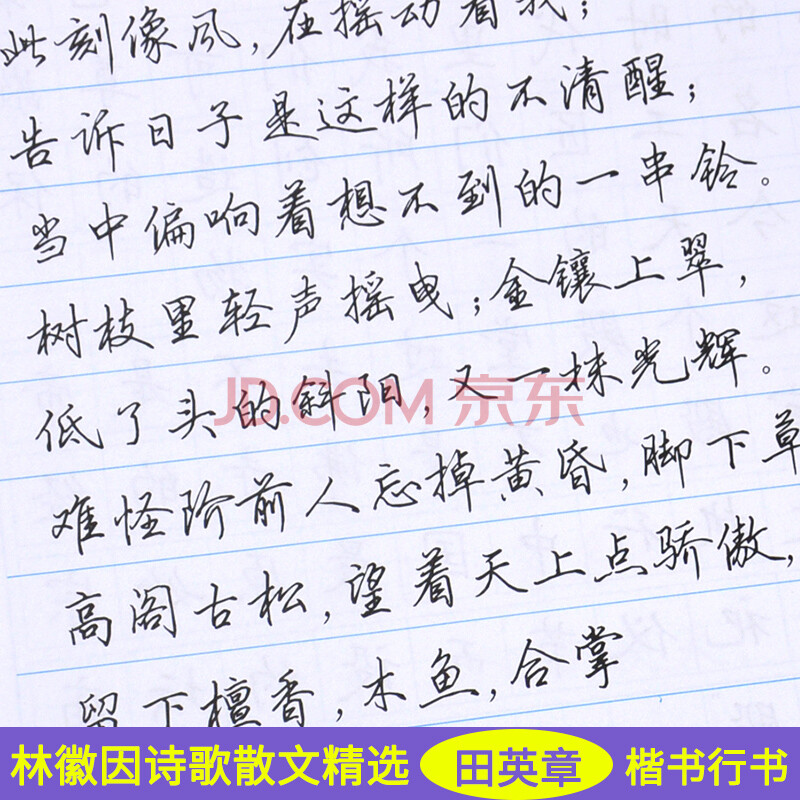 此刻像风，在摇动着我；
告诉日子是这样的不清醒；
当中偏响着想不到的一串铃。
树枝里轻声摇曳；金镶上翠，
低了头的斜阳，又一抹光辉。
JD.COM 京东
难怪阶前人忘掉黄昏，脚下草
高阁古松，望着天上点骄傲，
留下檀香，木鱼，合掌
林徽因诗歌散文精选 田英章 楷书行书